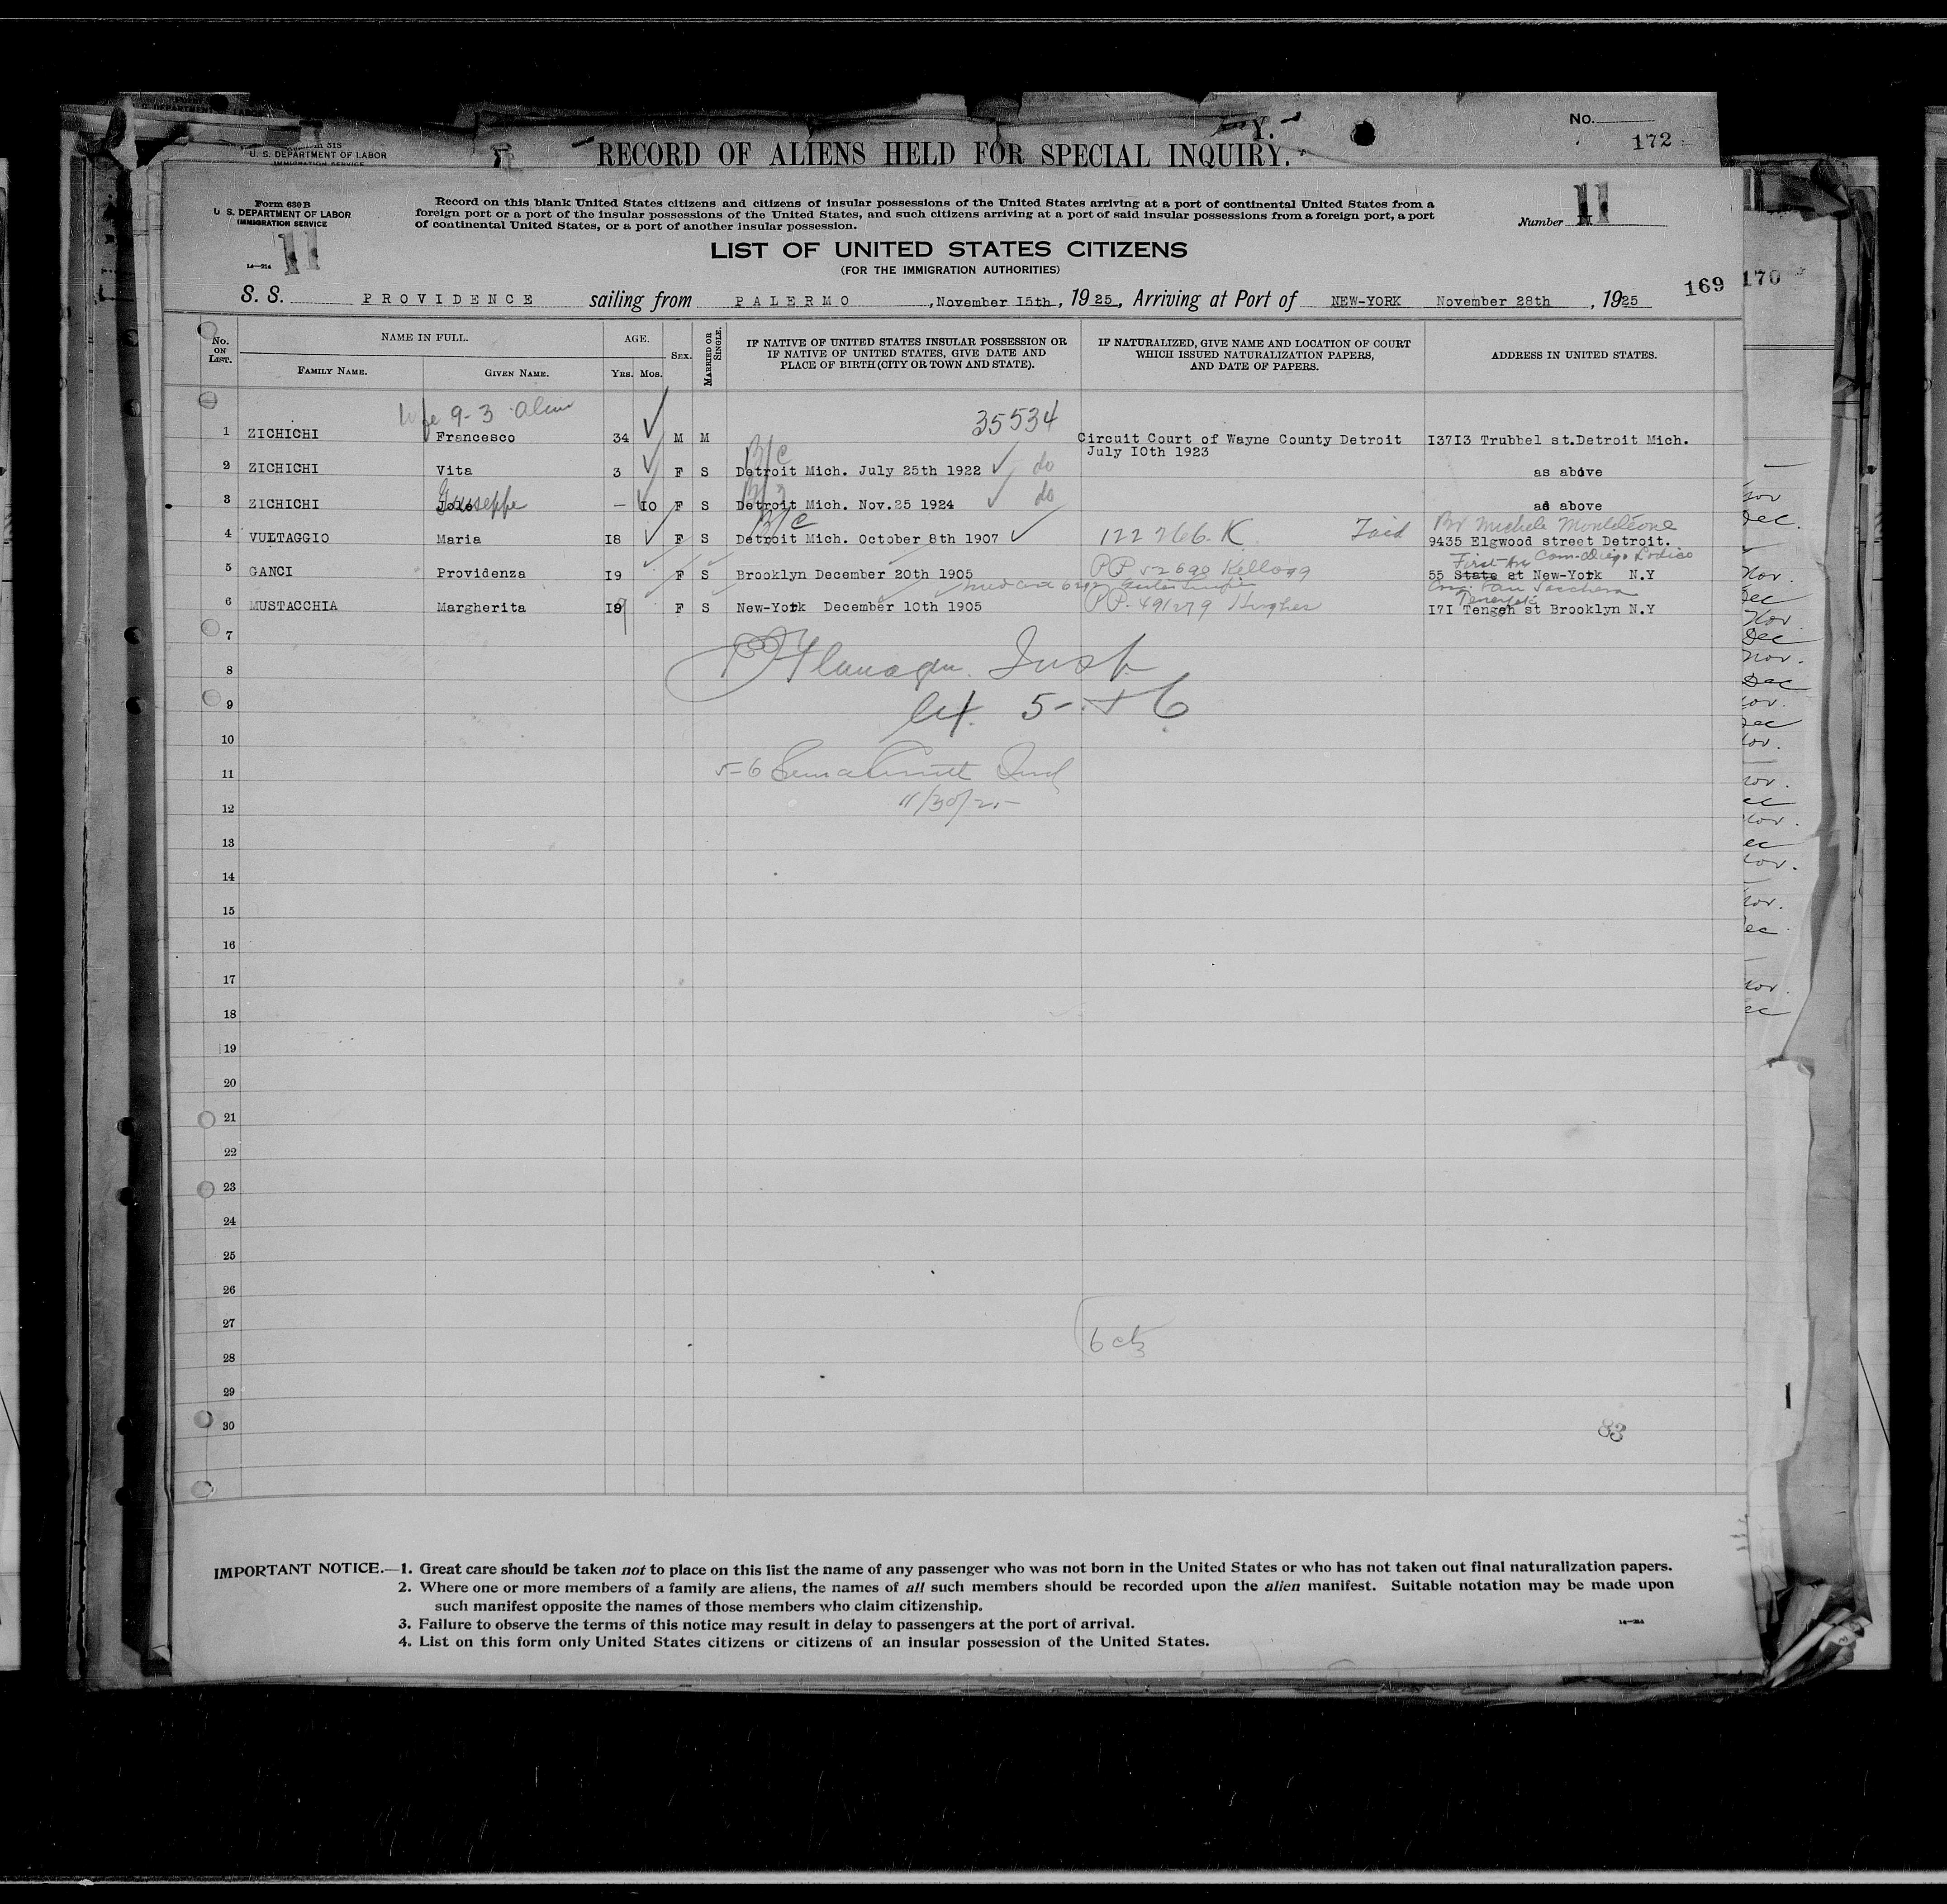 No.
172
RECORD OF ALIENS HELD FOR SPECIAL INQUIRY.
U. S. DEPARTMENT OF LABOR
Form 630 B
U. S. DEPARTMENT OF LABOR
IMMIGRATION SERVICE
11
Record on this blank United States citizens and citizens of insular possessions of the United States arriving at a port of continental United States from a
foreign port or a port of the insular possessions of the United States, and such citizens arriving at a port of said insular possessions from a foreign port, a port
of continental United States, or a port of another insular possession.
Number 11
LIST OF UNITED STATES CITIZENS
(FOR THE IMMIGRATION AUTHORITIES)
169 170
S. S. PROVIDENCE sailing from PALERMO, November 15th, 1925, Arriving at Port of NEW-YORK November 28th, 1925
No. ON LIST. NAME IN FULL. FAMILY NAME. GIVEN NAME. AGE. YRS. MOS. SEX. MARRIED OR SINGLE. IF NATIVE OF UNITED STATES INSULAR POSSESSION OR IF NATIVE OF UNITED STATES, GIVE DATE AND PLACE OF BIRTH (CITY OR TOWN AND STATE). IF NATURALIZED, GIVE NAME AND LOCATION OF COURT WHICH ISSUED NATURALIZATION PAPERS, AND DATE OF PAPERS. ADDRESS IN UNITED STATES.
Wife 9-3 Alien 35534
1 ZICHICHI Francesco 34 M M Circuit Court of Wayne County Detroit I37I3 Trubbel st.Detroit Mich.
July I0th 1923
B/C
2 ZICHICHI Vita 3 F S Detroit Mich. July 25th 1922 ✓ do as above
3 ZICHICHI Giuseppe - I0 F S Detroit Mich. Nov.25 1924 ✓ do as above
B/C Br Michele
4 VULTAGGIO Maria I8 F S Detroit Mich. October 8th 1907 ✓ 122766 K 9435 Elgwood street Detroit.
First Av
5 GANCI Providenza I9 F S Brooklyn December 20th 1905 PP 52690 Kellogg 55 State st New-York N.Y
6 MUSTACCHIA Margherita I9 F S New-York December I0th 1905 PP. 491279 Hughes I7I Tengeh st Brooklyn N.Y
7
8
9 5 + 6
10
11 5-6
12 11/30/25
13
14
15
16
17
18
19
20
21
22
23
24
25
26
27
28
29
30 83
IMPORTANT NOTICE.—1. Great care should be taken not to place on this list the name of any passenger who was not born in the United States or who has not taken out final naturalization papers.
2. Where one or more members of a family are aliens, the names of all such members should be recorded upon the alien manifest. Suitable notation may be made upon
such manifest opposite the names of those members who claim citizenship.
3. Failure to observe the terms of this notice may result in delay to passengers at the port of arrival.
4. List on this form only United States citizens or citizens of an insular possession of the United States.